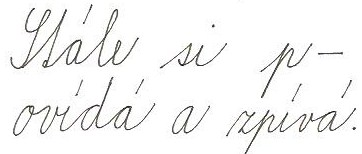 Stále si p-
ovídá a zpívá.